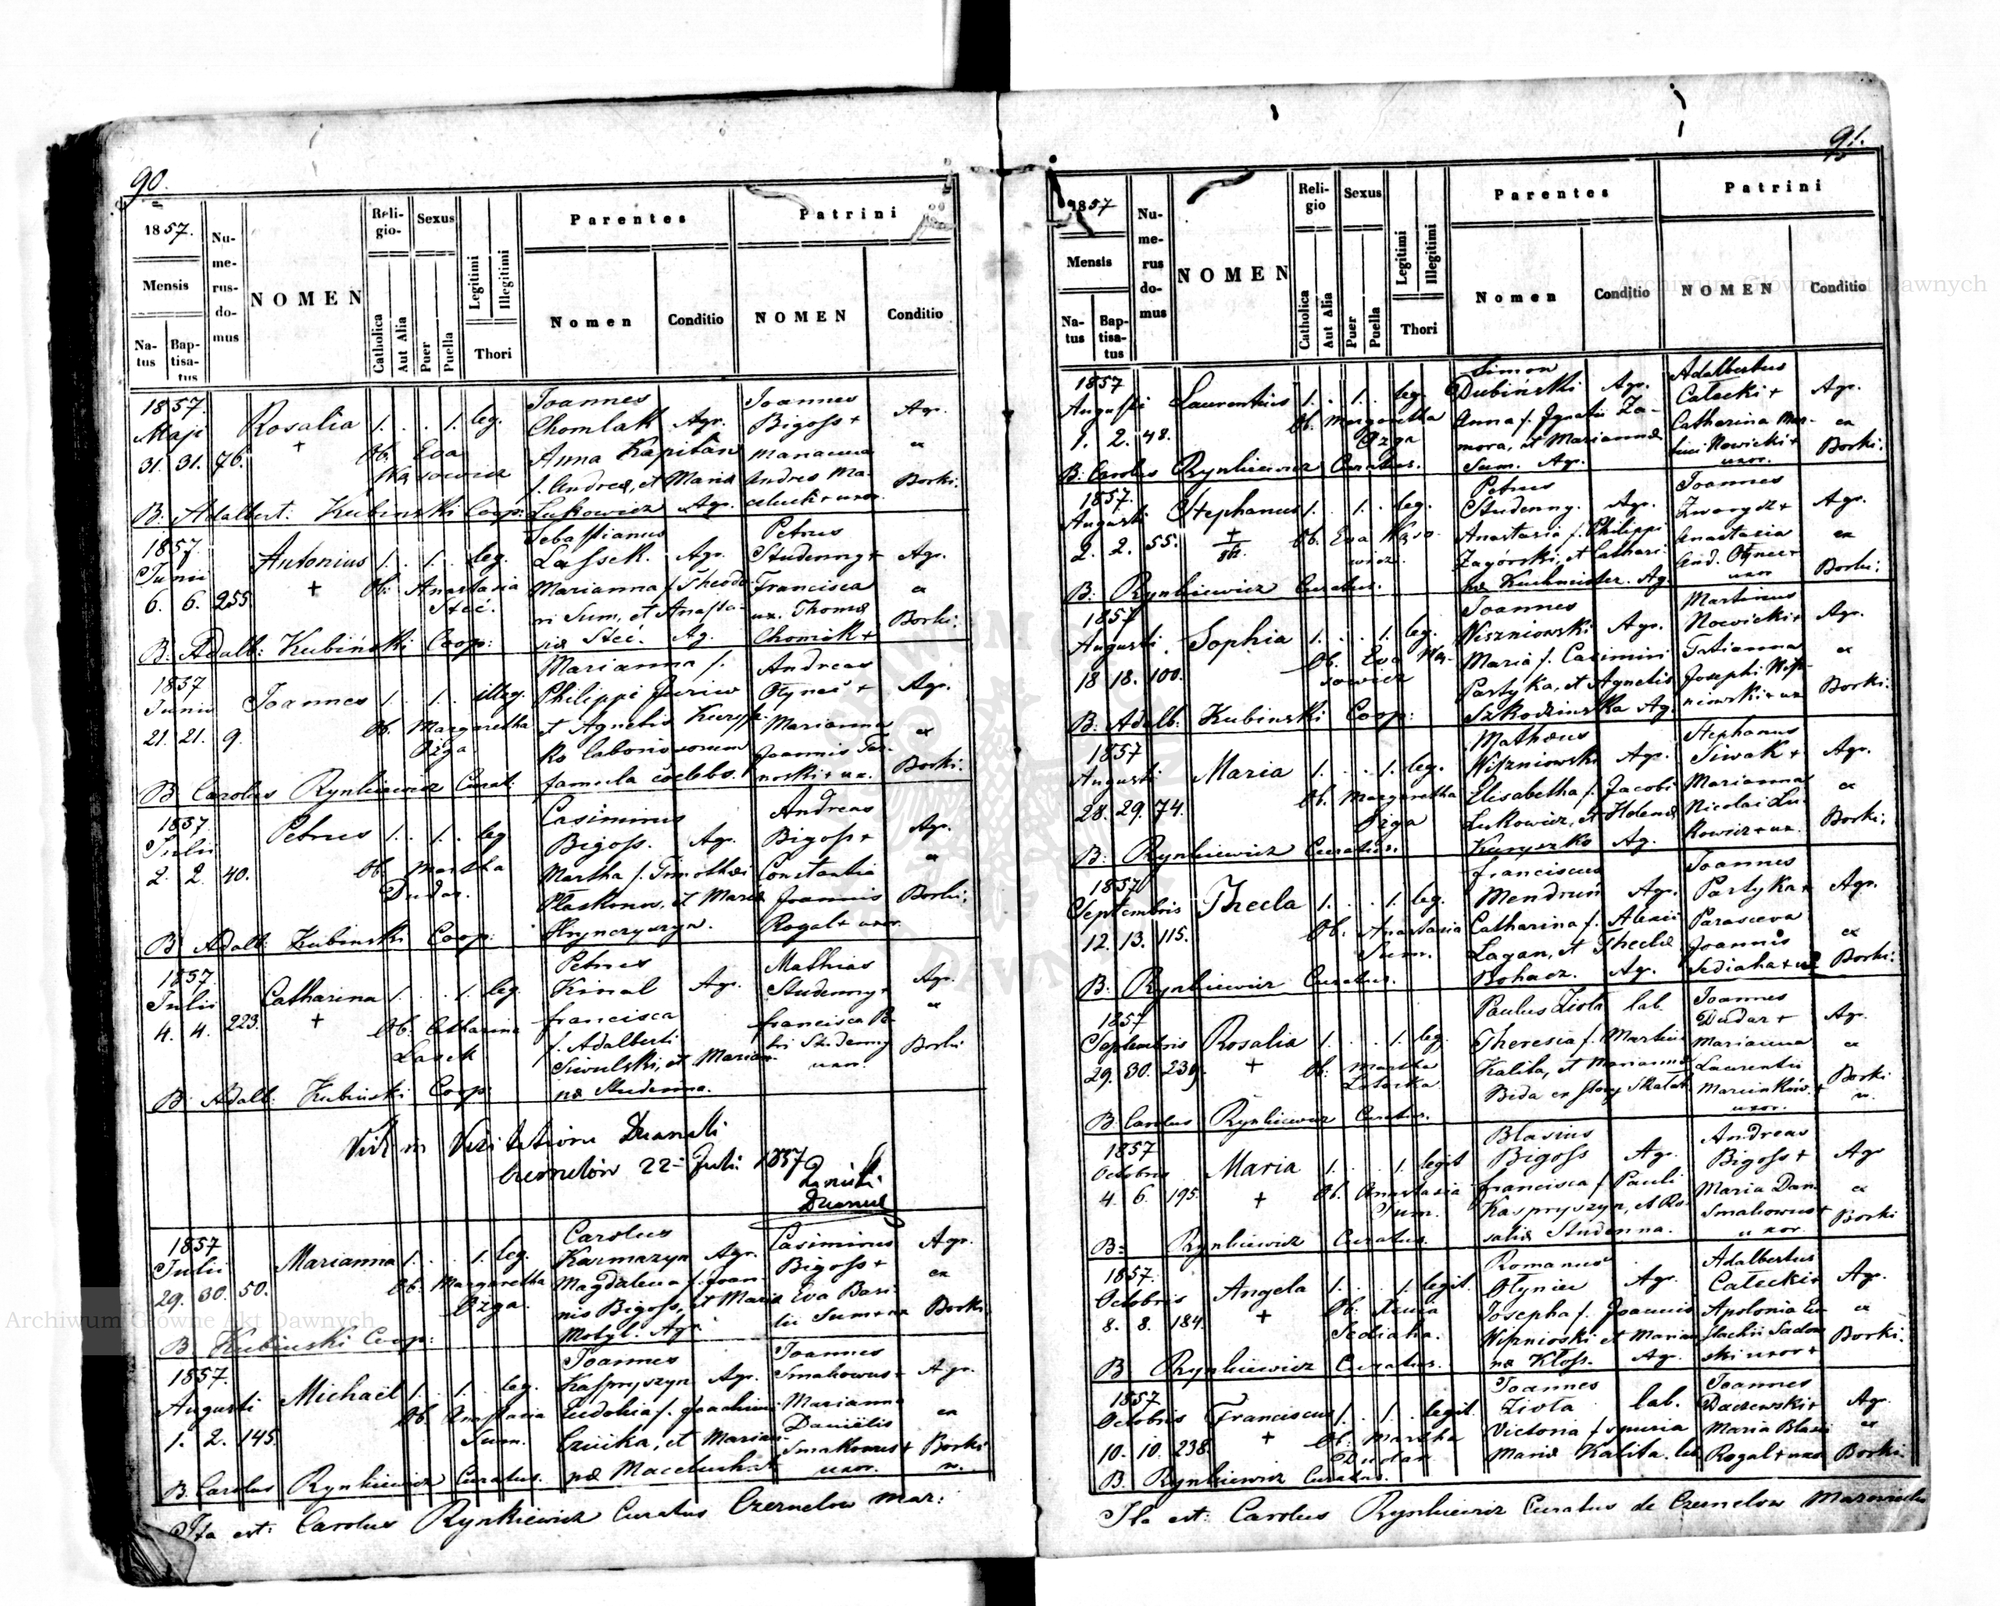 90.
1857.
Mensis
Natus
Baptisatus
Numerus domus
NOMEN
Religio
Catholica
Aut Alia
Sexus
Puer
Puella
Legitimi
Illegitimi
Thori
Parentes
Nomen
Conditio
Patrini
NOMEN
Conditio
1857. Joannes Joannes
Maji Rosalia 1. . . 1. leg. Chomlak Agr. Bigoss + Agr.
31. 31. 76. + Ob. Eva Anna Kapitan Marianna ex
f. Andreæ, et Mariæ Andreæ Borki.
B. Adalbert. Kubinski Coop. Lukowicz Agr. uxor.
1857. Sebastianus Petrus
Junii Antonius 1. . 1. . leg. Lassek. Agr. Studenny + Agr.
6. 6. 255. + Ob. Anastasia Marianna f. Theodo- Francisca ex
Steć. ri Sum, et Anasta- ux. Thomæ Borki.
B. Adalb: Kubiński Coop: siæ Steć. Ag. Chomik +
1857 Marianna f. Andreas
Junii Joannes 1. . 1. . illeg. Philippi Olyneć + Agr.
21. 21. 9. Ob. Margaretha et Agnetis Marianna ex
Ozga Joannis
B. Carolus Rynkiewicz Curat: famula coelebs. noski + ux. Borki.
1857. Casimirus Andreas
Julii Petrus 1. . 1. . leg. Bigoss. Agr. Bigoss + Agr.
2. 2. 40. Ob. Martha Martha f. Timothæi Constantia ex
Dudar. et Mariæ Joannis Borki.
B. Adalb. Kubinski Coop. Hrynczyszyn. Rogal + uxor.
1857. Petrus Mathias
Julii Catharina 1. . . 1. leg. Kinal Agr. Studenny + Agr.
4. 4. 223. + Ob. Catharina Francisca Francisca ex
Lasek f. Adalberti Studenny Borki
Siwulski, et Marian- uxor.
B. Adalb. Kubiński Coop. næ Studenna.
Vidi in Visitatione Decanali
Czernelów 22 Juli 1857
1857 Carolus Casimirus
Julii Marianna 1. . . 1. leg. Karmazyn Agr. Bigoss + Agr.
29. 30. 50. Ob. Margaretha Magdalena f. Joan- Eva Basi- ex
Ozga. nis Bigoss, et Maria lii Sum + ux Borki.
B. Kubinski Coop: Motyl. Agr.
1857. Joannes Joannes
Augusti Michaël 1. . 1. . leg. Kaspryszyn Agr. Smakowus + Agr.
1. 2. 145. Ob. Anastasia Eudokia f. Joachimi Marianna ex
Sum. et Marian- Danielis Borki
B. Carolus Rynkiewicz Curatus. næ Smakowus + uxor.
Ita est: Carolus Rynkiewicz Curatus Czernelow Maz:
91.
1857
Mensis
Natus
Baptisatus
Numerus domus
NOMEN
Religio
Catholica
Aut Alia
Sexus
Puer
Puella
Legitimi
Illegitimi
Thori
Parentes
Nomen
Conditio
Patrini
NOMEN
Conditio
1857 Simon Adalbertus
Augusti Laurentius 1. . 1. . leg. Dubiński Agr. Catecki + Agr.
1. 2. 48. Ob. Margaretha Anna f. Ignatii Za- Catharina Mar- ex
Ozga mora, et Mariannæ tini Nowicki + Borki.
B: Carolus Rynkiewicz Curatus. Sum. Agr. uxor.
1857. Petrus Joannes
Augusti Stephanus 1. . 1. . leg. Studenny. Agr. Zwarycz + Agr.
2. 2. 55. + Ob. Eva Anastasia f. Philippi Anastasia ex
Zagórski, et Cathari- And. Olynec + Borki.
B: Rynkiewicz Curatus. næ Kuchmister. Ag. uxor
1857 Joannes Martinus
Augusti Sophia 1. . . 1. leg. Wiszniowski Agr. Nowicki + Agr.
18 18. 100. Ob. Eva Maria f. Casimiri Tatianna ex
Partyka, et Agnetis Josephi Borki.
B. Adalb: Kubinski Coop: Szkodzinska Ag.
1857 Mathæus Stephanus
Augusti Maria 1. . . 1. leg. Wiszniowski Agr. Siwak + Agr.
28. 29. 74. Ob. Margaretha Elisabetha f. Jacobi Marianna ex
Ozga Lukowicz, et Helenæ Nicolai Lu- Borki.
B: Rynkiewicz Curatus. Kuryszko Ag. kowicz + ux.
1857 Franciscus Joannes
Septembris Thecla 1. . . 1. leg. Mendruń Agr. Partyka + Agr.
12. 13. 115. Ob. Anastasia Catharina f. Parasceva ex
Sum. Lagan, et Theclæ Joannis Borki.
B. Rynkiewicz Curatus. Bohacz. Ag. Sediaha + ux
1857 Paulus Ziola lab. Joannes
Septembris Rosalia 1. . . 1. leg. Theresia f. Martini Dudar + Agr.
29. 30. 239. + Ob. Martha Kalita, et Mariannæ Marianna ex
Bida ex Laurentii Borki
B. Carolus Rynkiewicz Curatus. uxor.
1857 Blasius Andreas
Octobris Maria 1. . . 1. legit Bigoss Agr. Bigoss + Agr
4. 6. 195. + Ob. Anastasia Francisca f. Pauli Maria Dan. ex
Sum. Kaspryszyn, et Ro- Smakowus + Borki
B: Rynkiewicz Curatus. saliæ Studenna. uxor.
1857. Romanus Adalbertus
Octobris Angela 1. . . 1. legit. Olyniec Agr. Catecki + Agr.
8. 8. 184. + Ob. Xenia Josepha f. Joannis Apolonia Eu- ex
Sediaha. Wisznioski et Marian- stachii Sadow- Borki.
B Rynkiewicz Curatus. næ Kloss. Ag. ski uxor +
1857 Joannes Joannes
Octobris Franciscus 1. . 1. . legit. Ziola lab. Daczewski + Agr.
10. 10. 238. + Ob: Martha Victoria f. spuria Maria Blasii ex
Dudar Mariæ Kalita lab. Rogal + uxor Borki.
B. Rynkiewicz Curatus.
Ita est: Carolus Rynkiewicz Curatus de Czernelow Mazowiecki
Archiwum Główne Akt Dawnych
Archiwum Główne Akt Dawnych